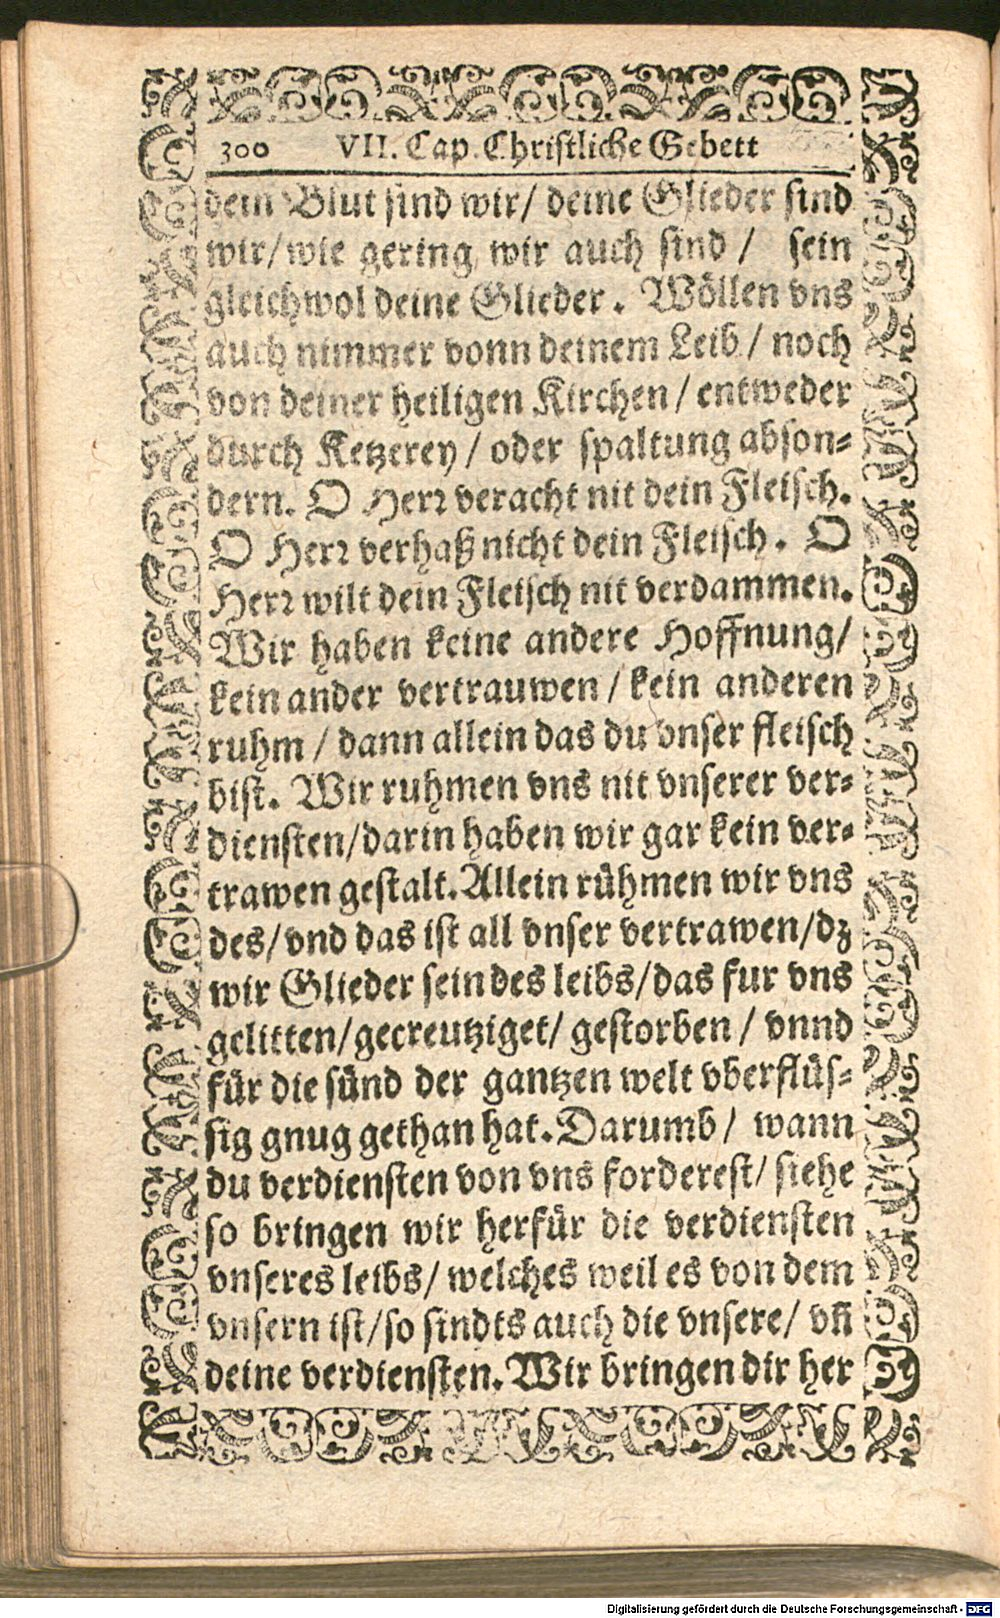 300 VII. Cap. Christliche Gebett
dein Blut sind wir/ deine Glieder sind
wir/ wie gering wir auch sind / sein
gleichwol deine Glieder. Wöllen vns
auch nimmer vonn deinem Leib / noch
von deiner heiligen Kirchen / entweder
durch Ketzerey / oder spaltung abson-
dern. O Herr veracht nit dein Fleisch.
O Herr verhaß nicht dein Fleisch. O
Herr wilt dein Fleisch nit verdammen.
Wir haben keine andere Hoffnung/
kein ander vertrauwen / kein anderen
ruhm / dann allein das du vnser fleisch
bist. Wir ruhmen vns nit vnserer ver-
diensten/darin haben wir gar kein ver-
trawen gestalt. Allein rühmen wir vns
des/ vnd das ist all vnser vertrawen/dz
wir Glieder sein des leibs/das fur vns
gelitten/gecreutziget/ gestorben / vnnd
für die sünd der gantzen welt vberflüs-
sig gnug gethan hat. Darumb / wann
du verdiensten von vns forderest/ siehe
so bringen wir herfür die verdiensten
vnseres leibs/ welches weil es von dem
vnsern ist/so sindts auch die vnsere/ vñ
deine verdiensten. Wir bringen dir her
Digitalisierung gefördert durch die Deutsche Forschungsgemeinschaft - DFG